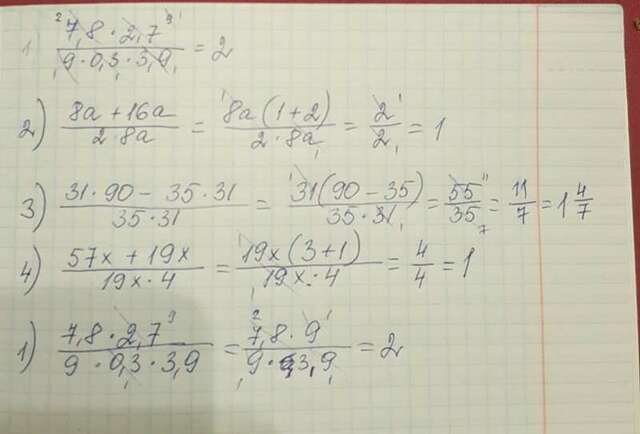 1) (7,8 · 2,7)/(9 · 0,3 · 3,9) = 2
2) (8a + 16a)/(2 · 8a) = (8a(1+2))/(2 · 8a) = 2/2 = 1
3) (31 · 90 − 35 · 31)/(35 · 31) = (31(90 − 35))/(35 · 31) = 55/35 = 11/7 = 1 4/7
4) (57x + 19x)/(19x · 4) = (19x(3+1))/(19x · 4) = 4/4 = 1
1) (7,8 · 2,7)/(9 · 0,3 · 3,9) = (7,8 · 9)/(9 · 3,9) = 2